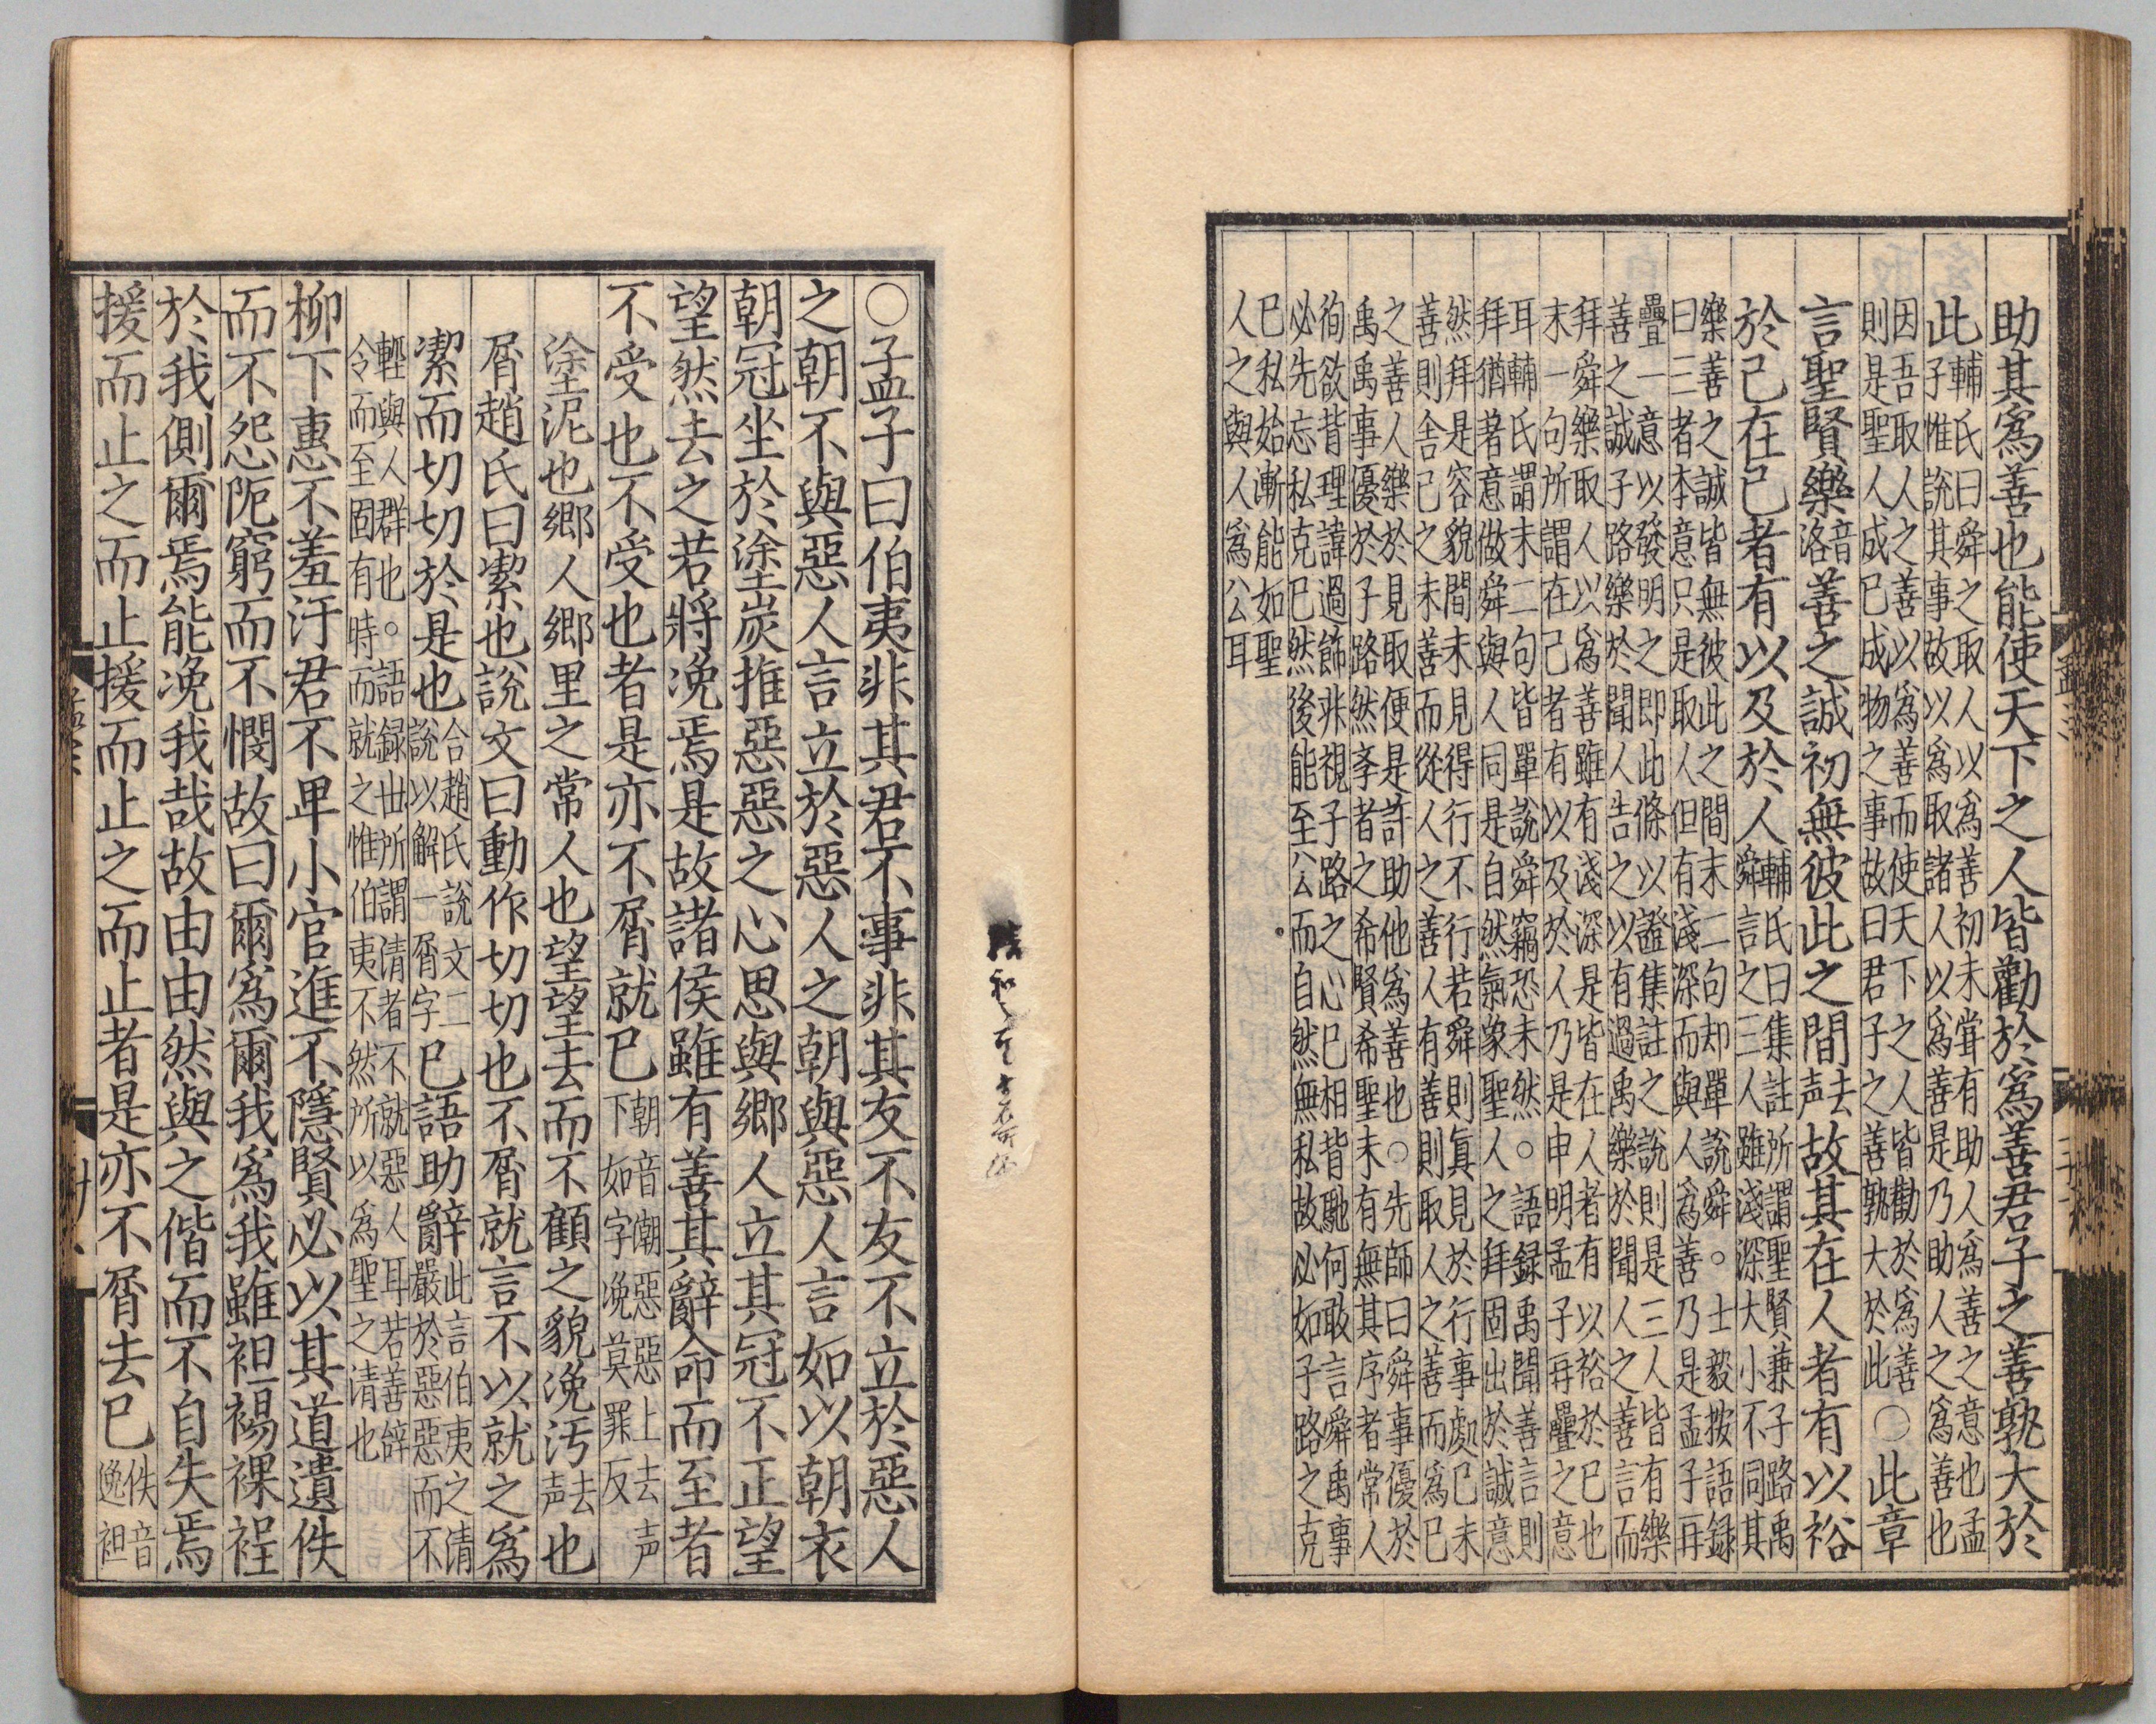 助其爲善也能使天下之人皆勸於爲善君子之善孰大於
此輔氏曰舜之取人以爲善初未甞有助人爲善之意也孟
子惟說其事故以爲取諸人以爲善是乃助人之爲善也
因吾取人之善以爲善而使天下之人皆勸於爲善
則是聖人成己成物之事故曰君子之善孰大於此○此章
言聖賢樂音洛善之誠初無彼此之間去声故其在人者有以裕
於己在己者有以及於人輔氏曰集註所謂聖賢兼子路禹
舜言之三人雖淺深大小不同其
樂善之誠皆無彼此之間末二句却單說舜。士毅按語録
曰三者本意只是取人但有淺深而與人爲善乃是孟子再
疊一意以發明之即此條以證集註之說則是三人皆有樂
善之誠子路樂於聞人告之以有過禹樂於聞人之善言而
拜舜樂取人以爲善雖有淺深是皆在人者有以裕於己也
末一句所謂在己者有以及於人乃是申明孟子再疊之意
耳輔氏謂末二句皆單說舜竊恐未然。語録禹聞善言則
拜猶著意做舜與人同是自然氣象聖人之拜固出於誠意
然拜是容貌間未見得行不行若舜則眞見於行事處己未
善則舍己之未善而從人之善人有善則取人之善而爲己
之善人樂於見取便是許助他爲善也○先師曰舜事優於
禹禹事優於子路然孝者之希賢希聖未有無其序者常人
徇欲背理諱過飾非視子路之心已相背馳何敢言舜禹事
必先忘私克己然後能至公而自然無私故必如子路之克
己私始漸能如聖
人之與人爲公耳
○孟子曰伯夷非其君不事非其友不友不立於惡人
之朝不與惡人言立於惡人之朝與惡人言如以朝衣
朝冠坐於塗炭推惡惡之心思與鄉人立其冠不正望
望然去之若將浼焉是故諸侯雖有善其辭命而至者
不受也不受也者是亦不屑就已朝音潮惡惡上去声
下如字浼莫罪反
塗泥也鄉人鄉里之常人也望望去而不顧之貌浼汚去声也
屑趙氏曰潔也說文曰動作切切也不屑就言不以就之爲
潔而切切於是也合趙氏說文二
說以解一屑字已語助辭此言伯夷之清
嚴於惡惡而不
輕與人群也。語録世所謂清者不就惡人耳若善辭
令而至固有時而就之惟伯夷不然所以爲聖之清也
柳下惠不羞汙君不卑小官進不隱賢必以其道遺佚
而不怨阨窮而不憫故曰爾爲爾我爲我雖袒裼裸裎
於我側爾焉能浼我哉故由由然與之偕而不自失焉
援而止之而止援而止之而止者是亦不屑去已佚音
逸袒